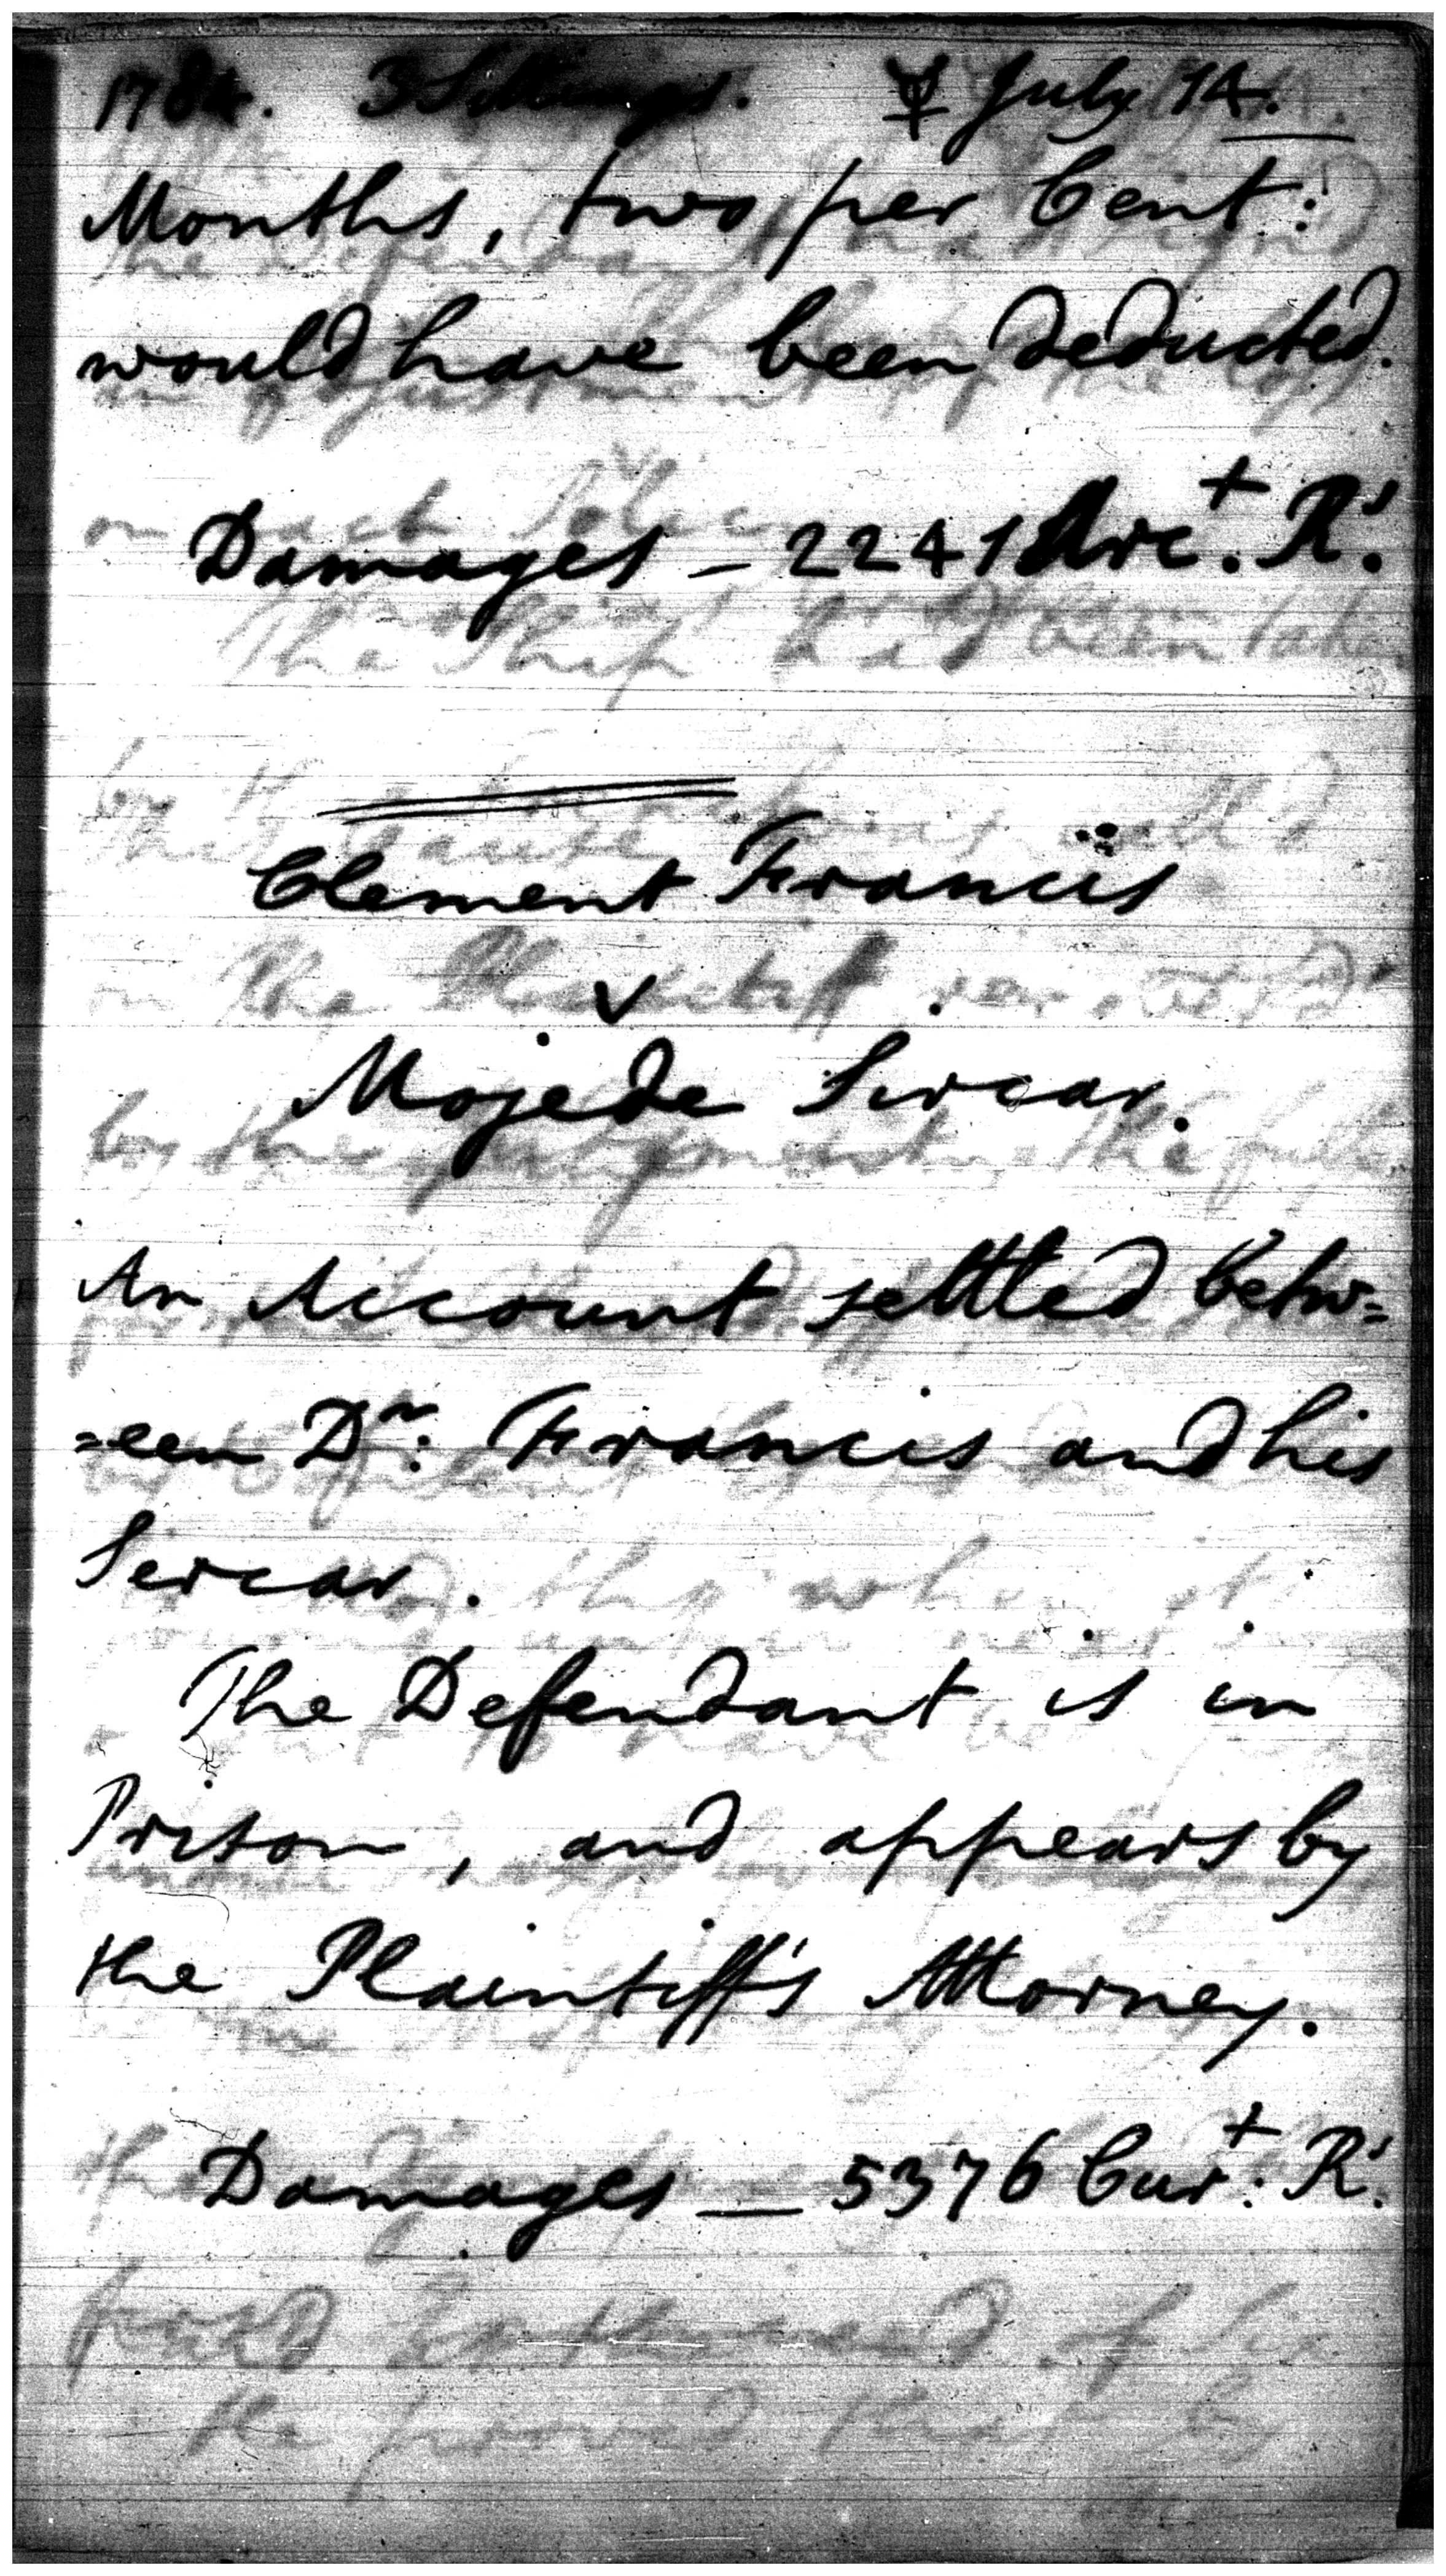 1784. 3 Sittings. ☿ July 14.
Months, two per Cent:
would have been deducted.
Damages _ 2241 Arc.t R.s
Clement Francis
v
Mojede Sircar.
An Account settled betw=
=een Dr: Francis and his
Sercar.
The Defendant is in
Prison, and appears by
the Plaintiff's Attorney.
Damages _ 5376 Cur:t R.s